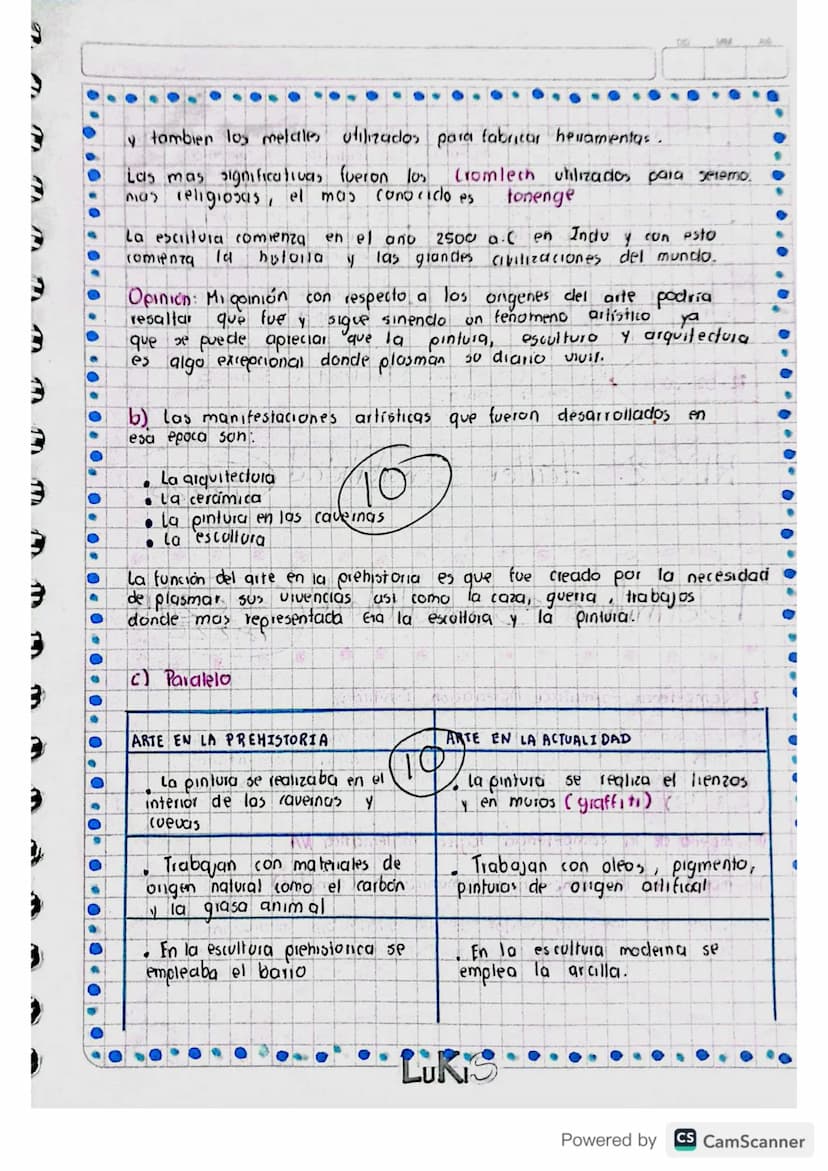 y tambien los metales utilizados para fabricar herramentas.
Las mas significativas fueron los Cromlech utilizados para seremo.
nias religiosas, el mas conocido es tonenge
La escultura comienza en el año 2500 a.C en Indu y con esto
comienza la historia y las grandes civilizaciones del mundo.
Opinión: Mi opinión con respecto a los origenes del arte podria
resaltar que fue y sigue sinendo un fenomeno artístico ya
que se puede apreciar que la pintura, escultura y arquitectura
es algo excepcional donde plasman su diario vivir.
b) Las manifestaciones artísticas que fueron desarrollados en
esa epoca son:
• La arquitectura
• La cerámica
10
• La pintura en las cavernas
• La escultura
La función del arte en la prehistoria es que fue creado por la necesidad
de plasmar sus vivencias asi como la caza, guerra, trabajos
donde mas representada era la escultura y la pintura.
c) Paralelo
ARTE EN LA PREHISTORIA
ARTE EN LA ACTUALIDAD
10
. La pintura se realizaba en el
interior de las cavernas y
cuevas
. La pintura se realiza el lienzos
y en muros (graffiti)
. Trabajan con materiales de
origen natural como el carbón
y la grasa animal
. Trabajan con oleos, pigmento,
pinturas de origen artifical
. En la escultura prehistorica se
empleaba el barro
. En la escultura moderna se
emplea la arcilla.
LUKIS
Powered by CS CamScanner